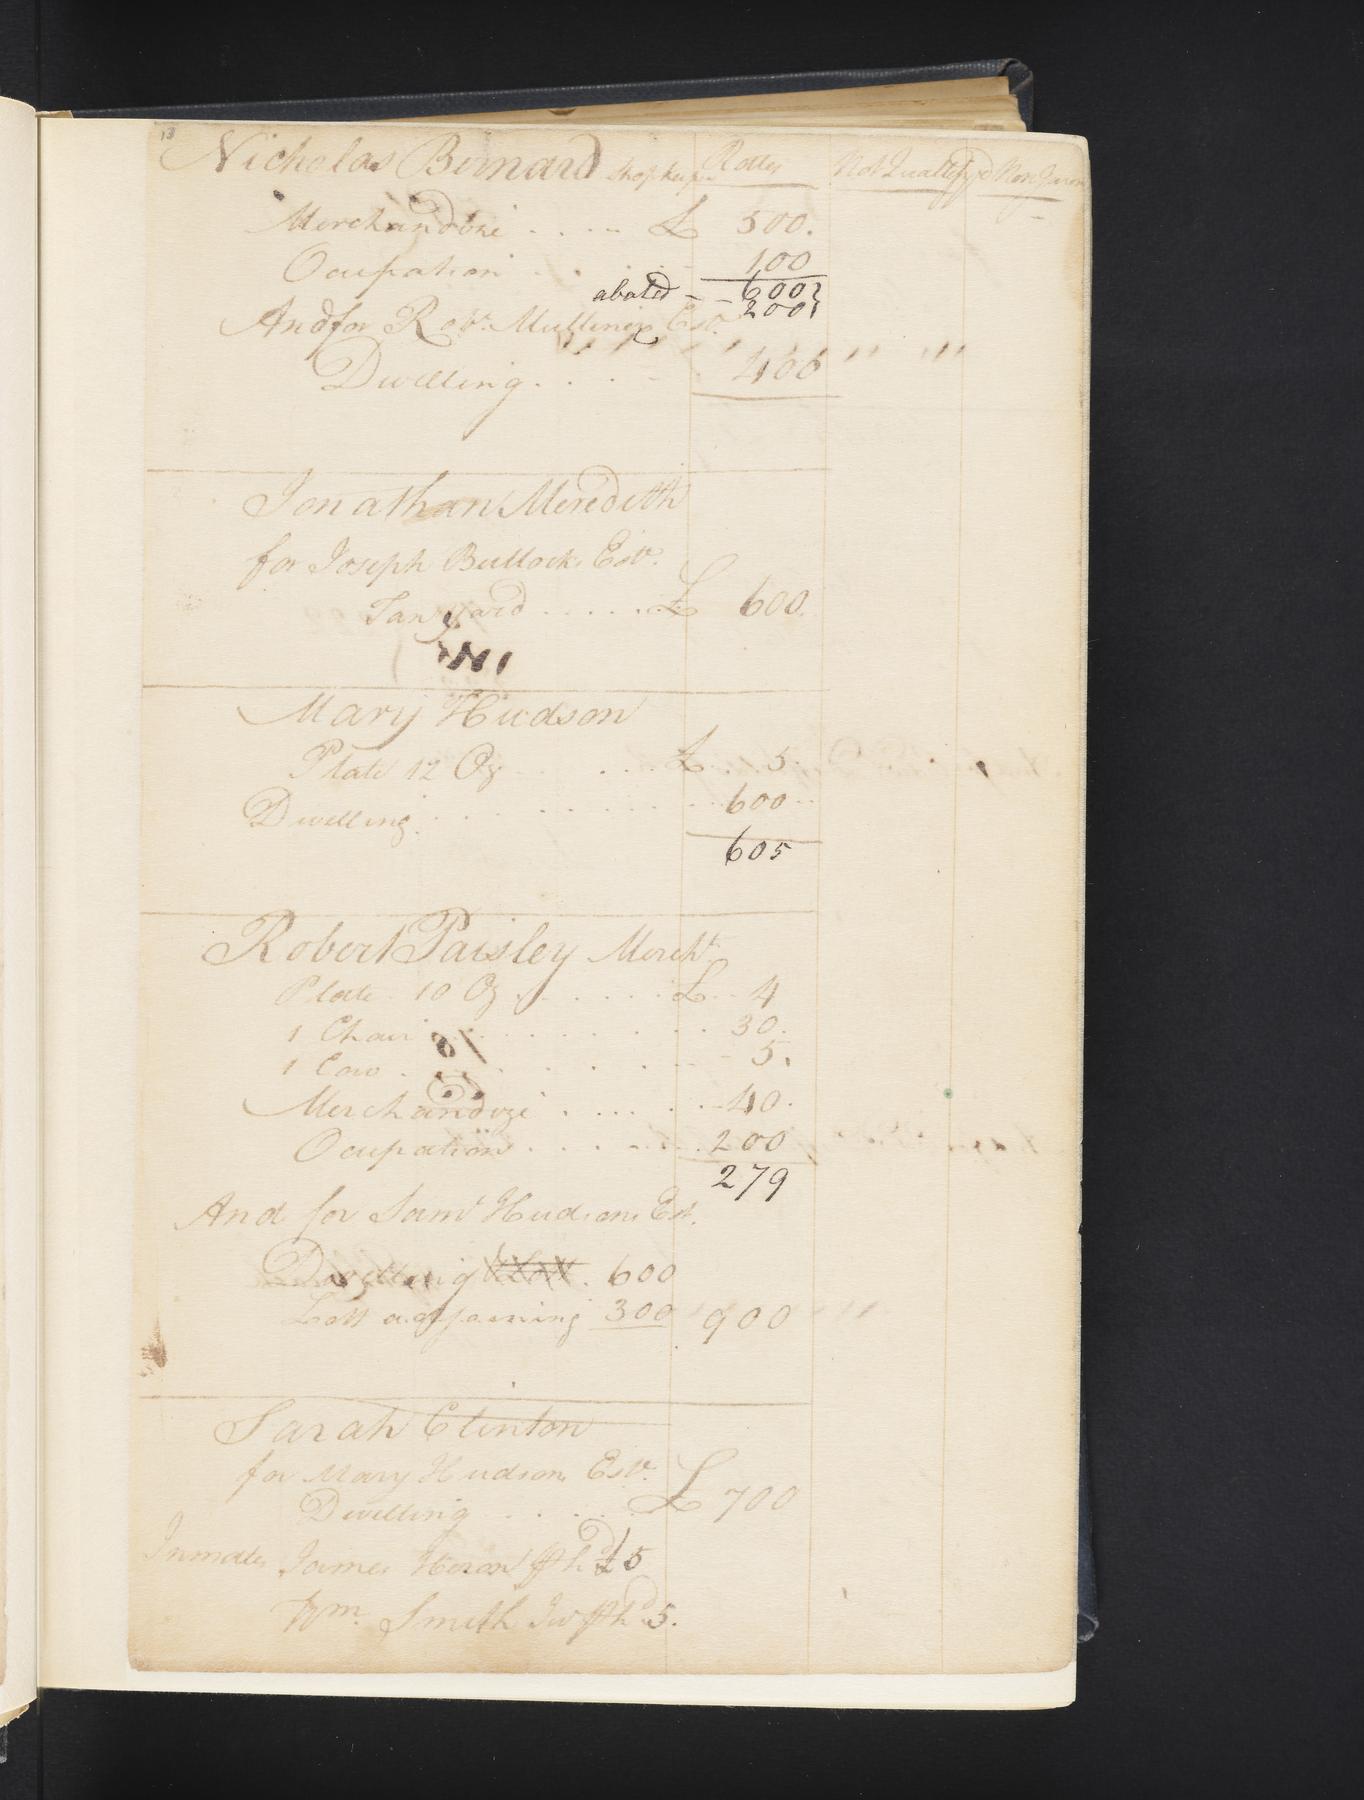 13
Nicholas Bernard Shopkeepr Rates Not Qualifyd Non Juror
Merchandize .... £ 500.
Ocupation .... 100
600
abated - - 200
And for Robt. Mullinix Est.
Dwelling .... 400
Jonathan Meredith
for Joseph Bullocks Estr.
Tan yard ..... £ 600.
Mary Hudson
Plate 12 Oz ... £ 5.
Dwelling ........ 600
605
Robert Paisley Mercht
Plate 10 Oz ...... £ 4
1 Chair ........ 30.
1 Cow ........ 5.
Merchandize ..... 40.
Ocupation ..... 200
279
And for Saml Hudsons Est.
Dwelling 600
Lott adjoining 300 900
Sarah Clinton
for Mary Hudsons Estr.
Dwelling ..... £ 700
Inmates James Heron ph'd £5
Wm. Smith Jur ph'd 5.